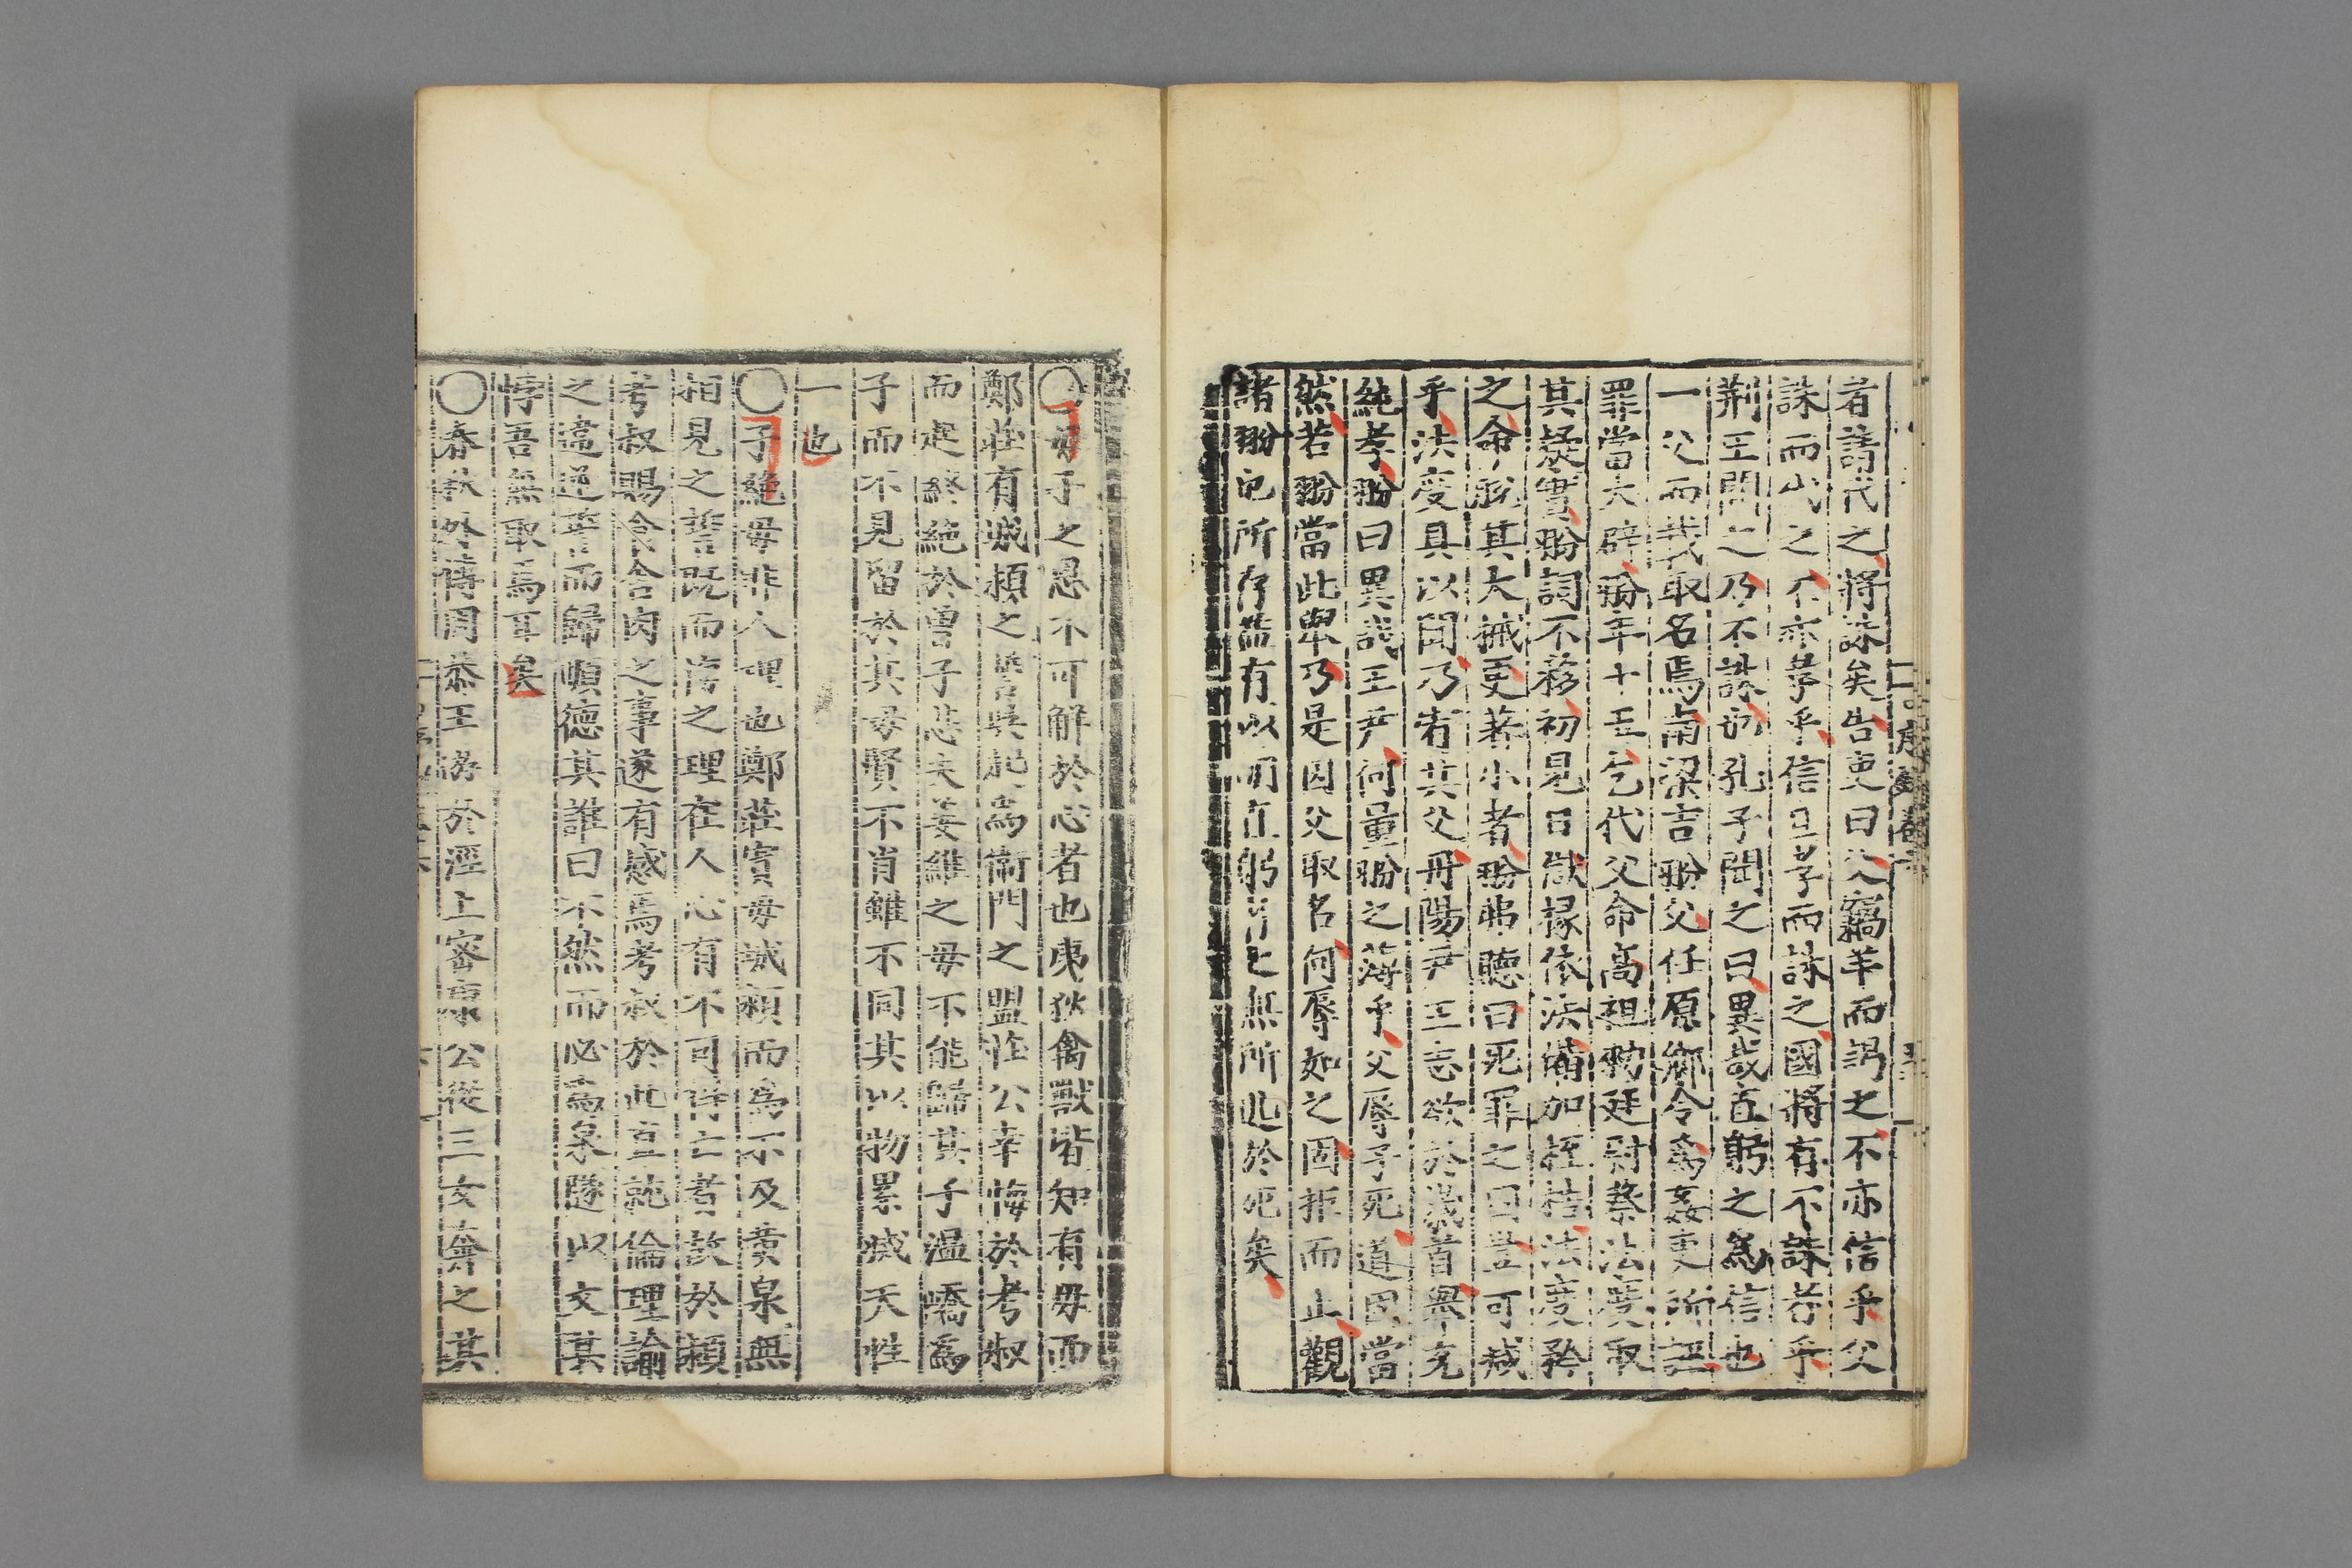 者請代之將誅矣告吏曰父竊羊而謁之不亦信乎父
誅而代之不亦孝乎信且孝而誅之國將有不誅者乎
荆王聞之乃不誅也孔子聞之曰異哉直躬之為信也
一父而載取名焉南梁吉翂父任原鄉令為姦吏所誣
罪當大辟翂年十五乞代父命高祖勑廷尉蔡法度取
其疑實翂詞不移初見囚獄掾依法備加桎梏法度矜
之命脫其大械更著小者翂弗聽曰死罪之囚豈可減
乎法度具以聞乃宥其父丹陽尹王志欲於歲首舉充
純孝翂曰異哉王尹何量翂之薄乎父辱子死道固當
然若翂當此舉乃是因父取名何辱如之固拒而止觀
諸翂也所存盖有以明直躬者之無所逃於死矣
○母子之恩不可解於心者也夷狄禽獸皆知有母而
鄭莊有城潁之誓吳起為衛門之盟莊公幸悔於考叔
而起終絶於曾子甚矣姜維之母不能歸其子溫嶠為
子而不見留於其母賢不肖雖不同其以物累滅天性
一也
○子絶母非人理也鄭莊寘母城潁而為不及黃泉無
相見之誓既而悔之理在人心有不可得亡者故於潁
考叔賜食舍肉之事遂有感焉考叔於此宜純倫理諭
之違逆華而歸順德其誰曰不然而必為泉隧以文其
悖吾無取焉耳矣
○春秋外傳周恭王游於涇上密康公從三女奔之其